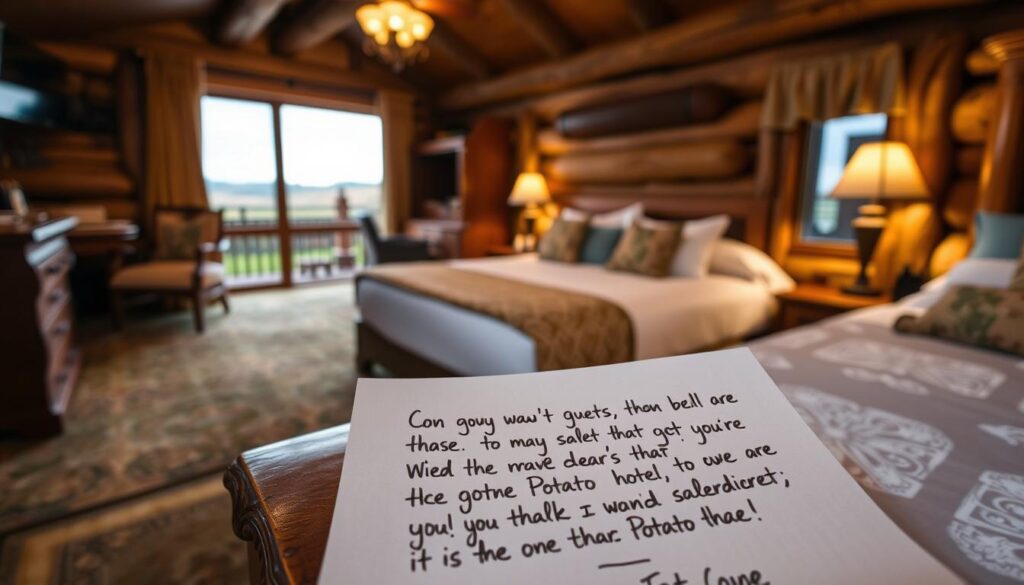 Con gouy waw't guets, than bell are
thase. to may salet that get you're
Wied the mave dear's that
Hce gotne Potato hotel, to owe are
you! you thalk I wand salerdicret;
it is the one thar Potato thae!